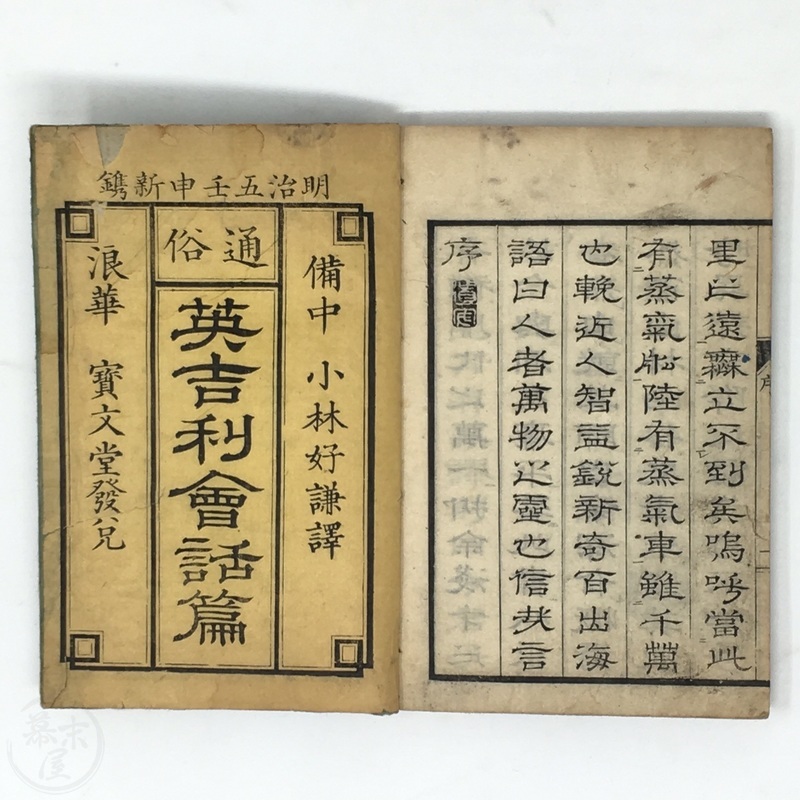 明治五壬申新鐫
備中 小林好謙譯
通俗
英吉利會話篇
浪華 寶文堂發兌
序
語曰人者萬物之靈也信哉言
也輓近人智益銳新奇百出海
有蒸氣船陸有蒸氣車雖千萬
里之遠無立不到矣嗚呼當此
序
一
幕末屋